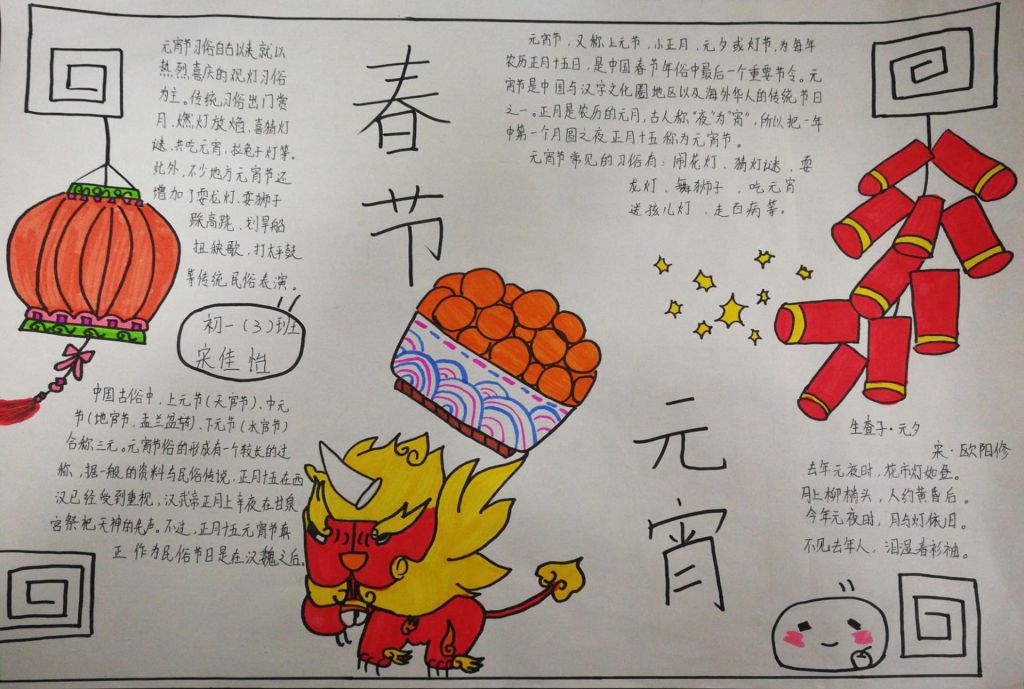 元宵节习俗自古以来就以
热烈喜庆的观灯习俗
为主。传统习俗出门赏
月、燃灯放焰、喜猜灯
谜、共吃元宵、拉兔子灯等。
此外,不少地方元宵节还
增加了耍龙灯、耍狮子
踩高跷、划旱船
扭秧歌、打太平鼓
等传统民俗表演。
初一(3)班
宋佳怡
中国古俗中,上元节(天官节)、中元
节(地官节、盂兰盆节)、下元节(水官节)
合称三元。元宵节俗的形成有一个较长的过
称,据一般的资料与民俗传说,正月十五在西
汉已经受到重视,汉武帝正月上辛夜在甘泉
宫祭祀天神的先声。不过,正月十五元宵节真
正 作为民俗节日是在汉魏之后。
春节
元宵
元宵节,又称上元节,小正月,元夕或灯节,为每年
农历正月十五日,是中国春节年俗中最后一个重要节令。元
宵节是中国与汉字文化圈地区以及海外华人的传统节日
之一。正月是农历的元月,古人称"夜"为"宵",所以把一年
中第一个月圆之夜正月十五称为元宵节。
元宵节常见的习俗有:闹花灯、猜灯谜、耍
龙灯、舞狮子、吃元宵
送孩儿灯、走百病等。
生查子·元夕
宋·欧阳修
去年元夜时,花市灯如昼。
月上柳梢头,人约黄昏后。
今年元夜时,月与灯依旧。
不见去年人,泪湿春衫袖。